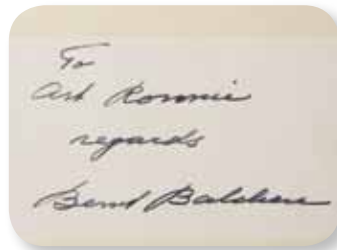 To
Art Ronnie
regards
Bernt Balchen